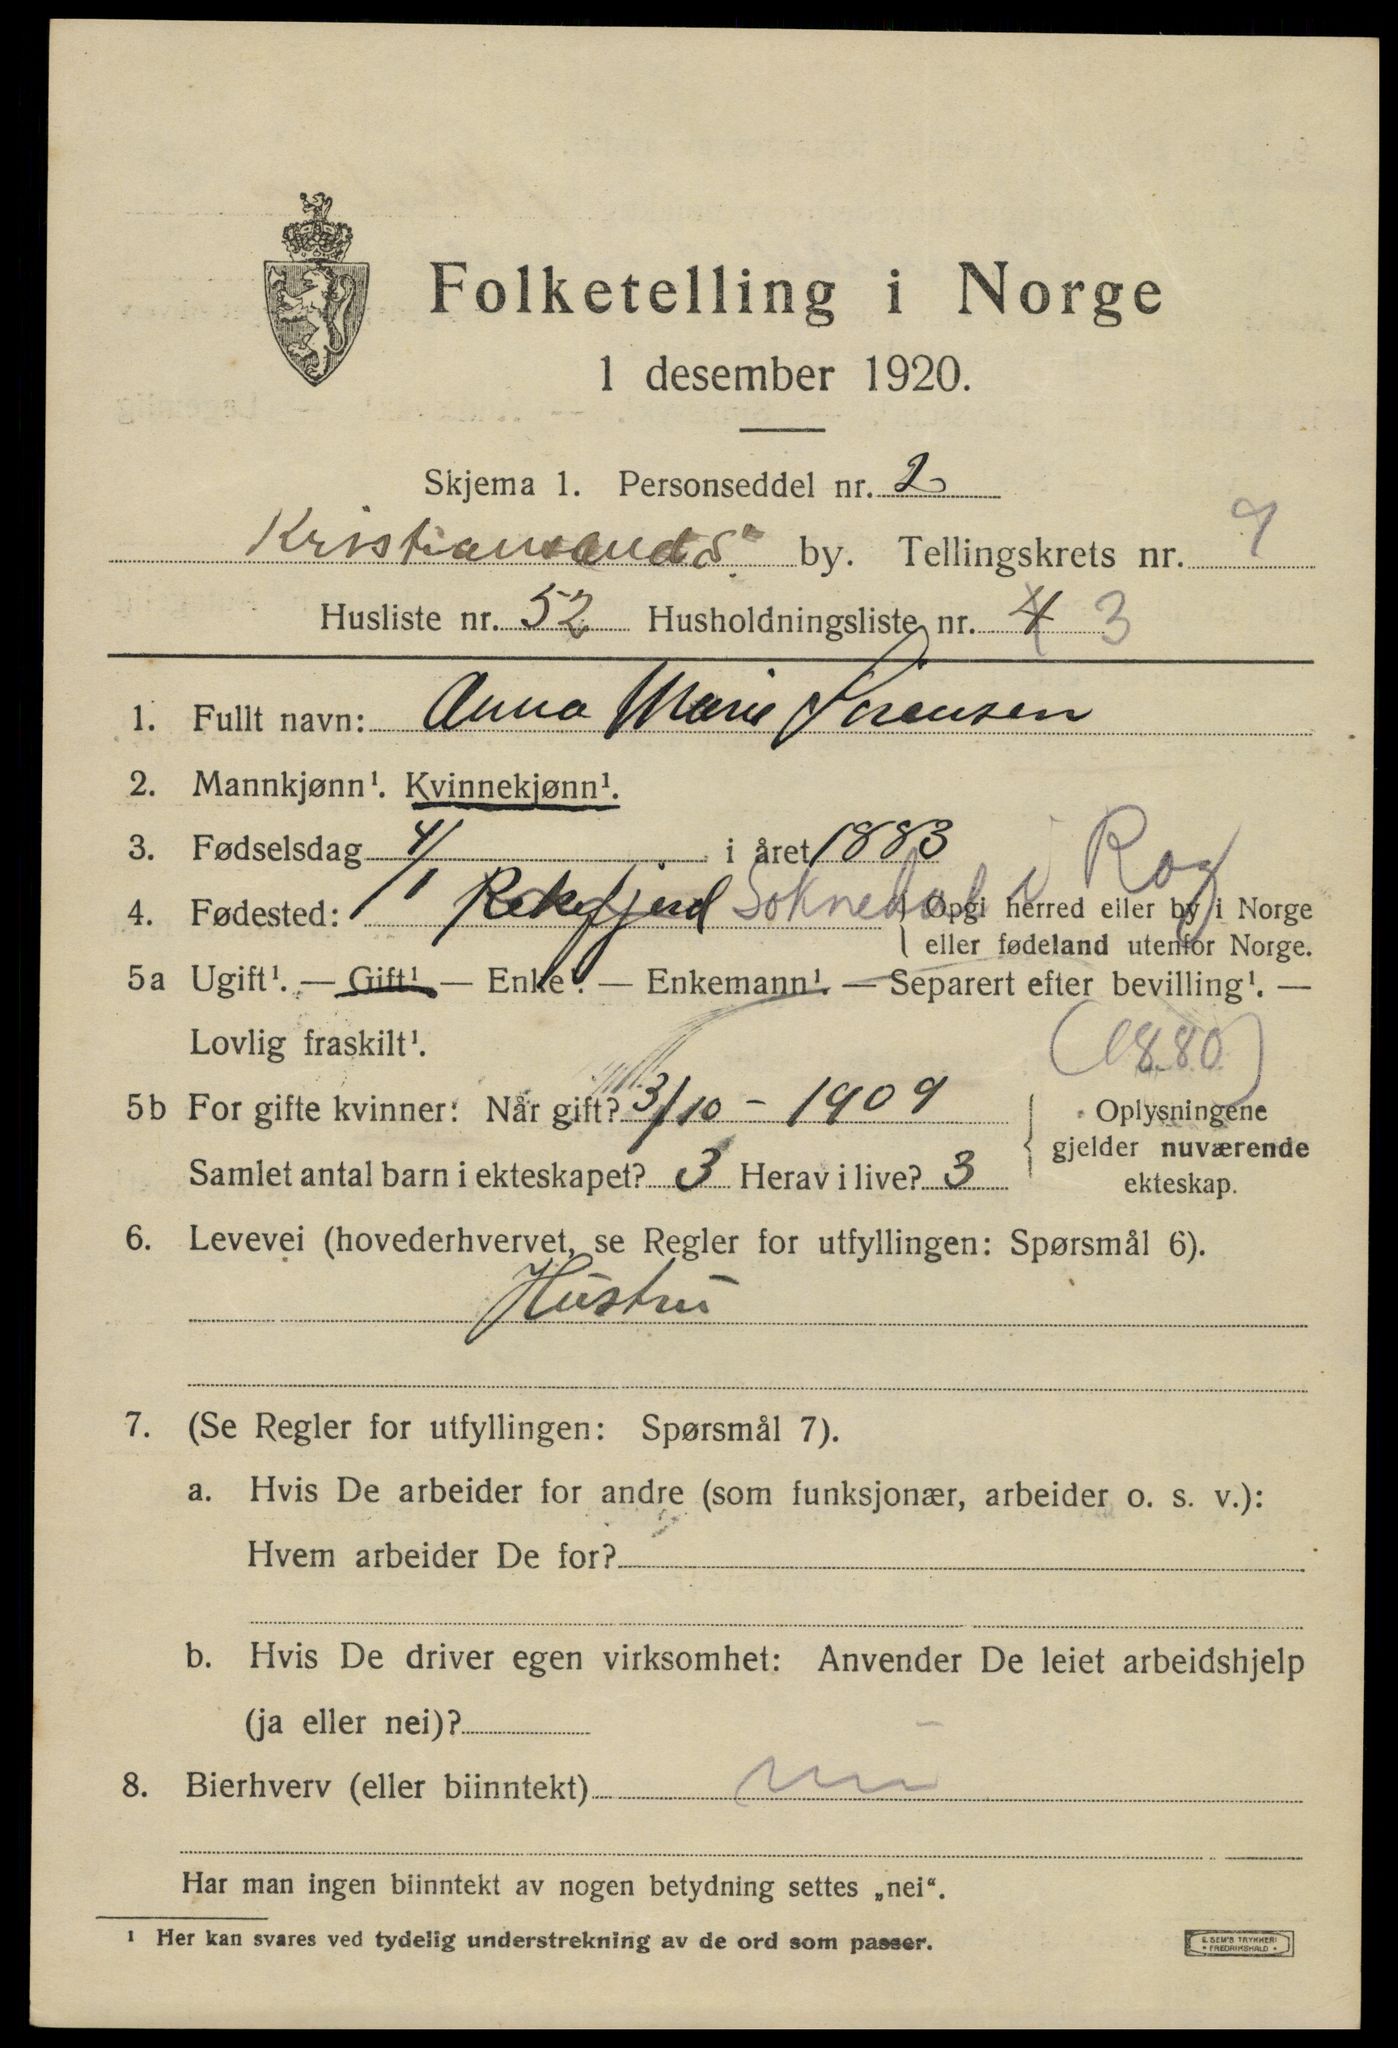 Folketelling i Norge
1 desember 1920.
Skjema 1. Personseddel nr. 2
Kristiansands by. Tellingskrets nr. 9
Husliste nr. 52 Husholdningsliste nr. 4 3
1. Fullt navn: Anna Marie Sørensen
2. Mannkjønn¹. Kvinnekjønn¹.
3. Fødselsdag 4/1 i året 1883
4. Fødested: Rekefjord Sokndal i Rog { Opgi herred eller by i Norge
eller fødeland utenfor Norge.
5a Ugift¹. — Gift¹ — Enke¹. — Enkemann¹. — Separert efter bevilling¹. —
Lovlig fraskilt¹. (1880)
5b For gifte kvinner: Når gift? 3/10 - 1909 { Oplysningene
gjelder nuværende
Samlet antal barn i ekteskapet? 3 Herav i live? 3 ekteskap.
6. Levevei (hovederhvervet, se Regler for utfyllingen: Spørsmål 6).
Hustru
7. (Se Regler for utfyllingen: Spørsmål 7).
a. Hvis De arbeider for andre (som funksjonær, arbeider o. s. v.):
Hvem arbeider De for?
b. Hvis De driver egen virksomhet: Anvender De leiet arbeidshjelp
(ja eller nei)?
8. Bierhverv (eller biinntekt) nei
Har man ingen biinntekt av nogen betydning settes „nei“.
¹ Her kan svares ved tydelig understrekning av de ord som passer.
E. SEM'S TRYKKERI
FREDRIKSHALD